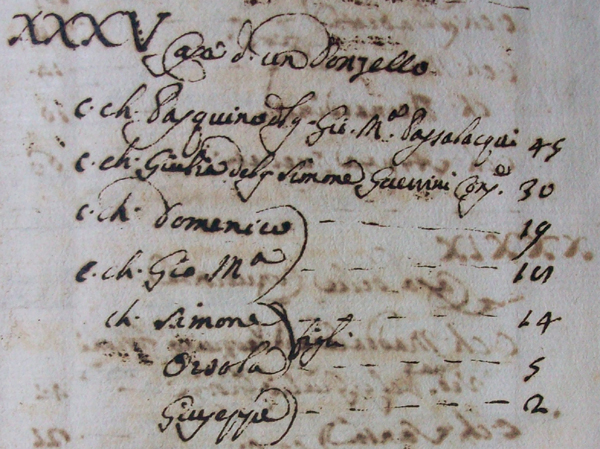 XXXV Casa d'un Donzello
c. ch. Pasquino del q. Gio. M.ª Passalacqui 45
c. ch. Giulia del q. Simone Guerrini Con. 30
c. ch. Domenico 19
c. ch. Gio M.ª
ch. Simone figli 14
Orsola 5
Giuseppe 2